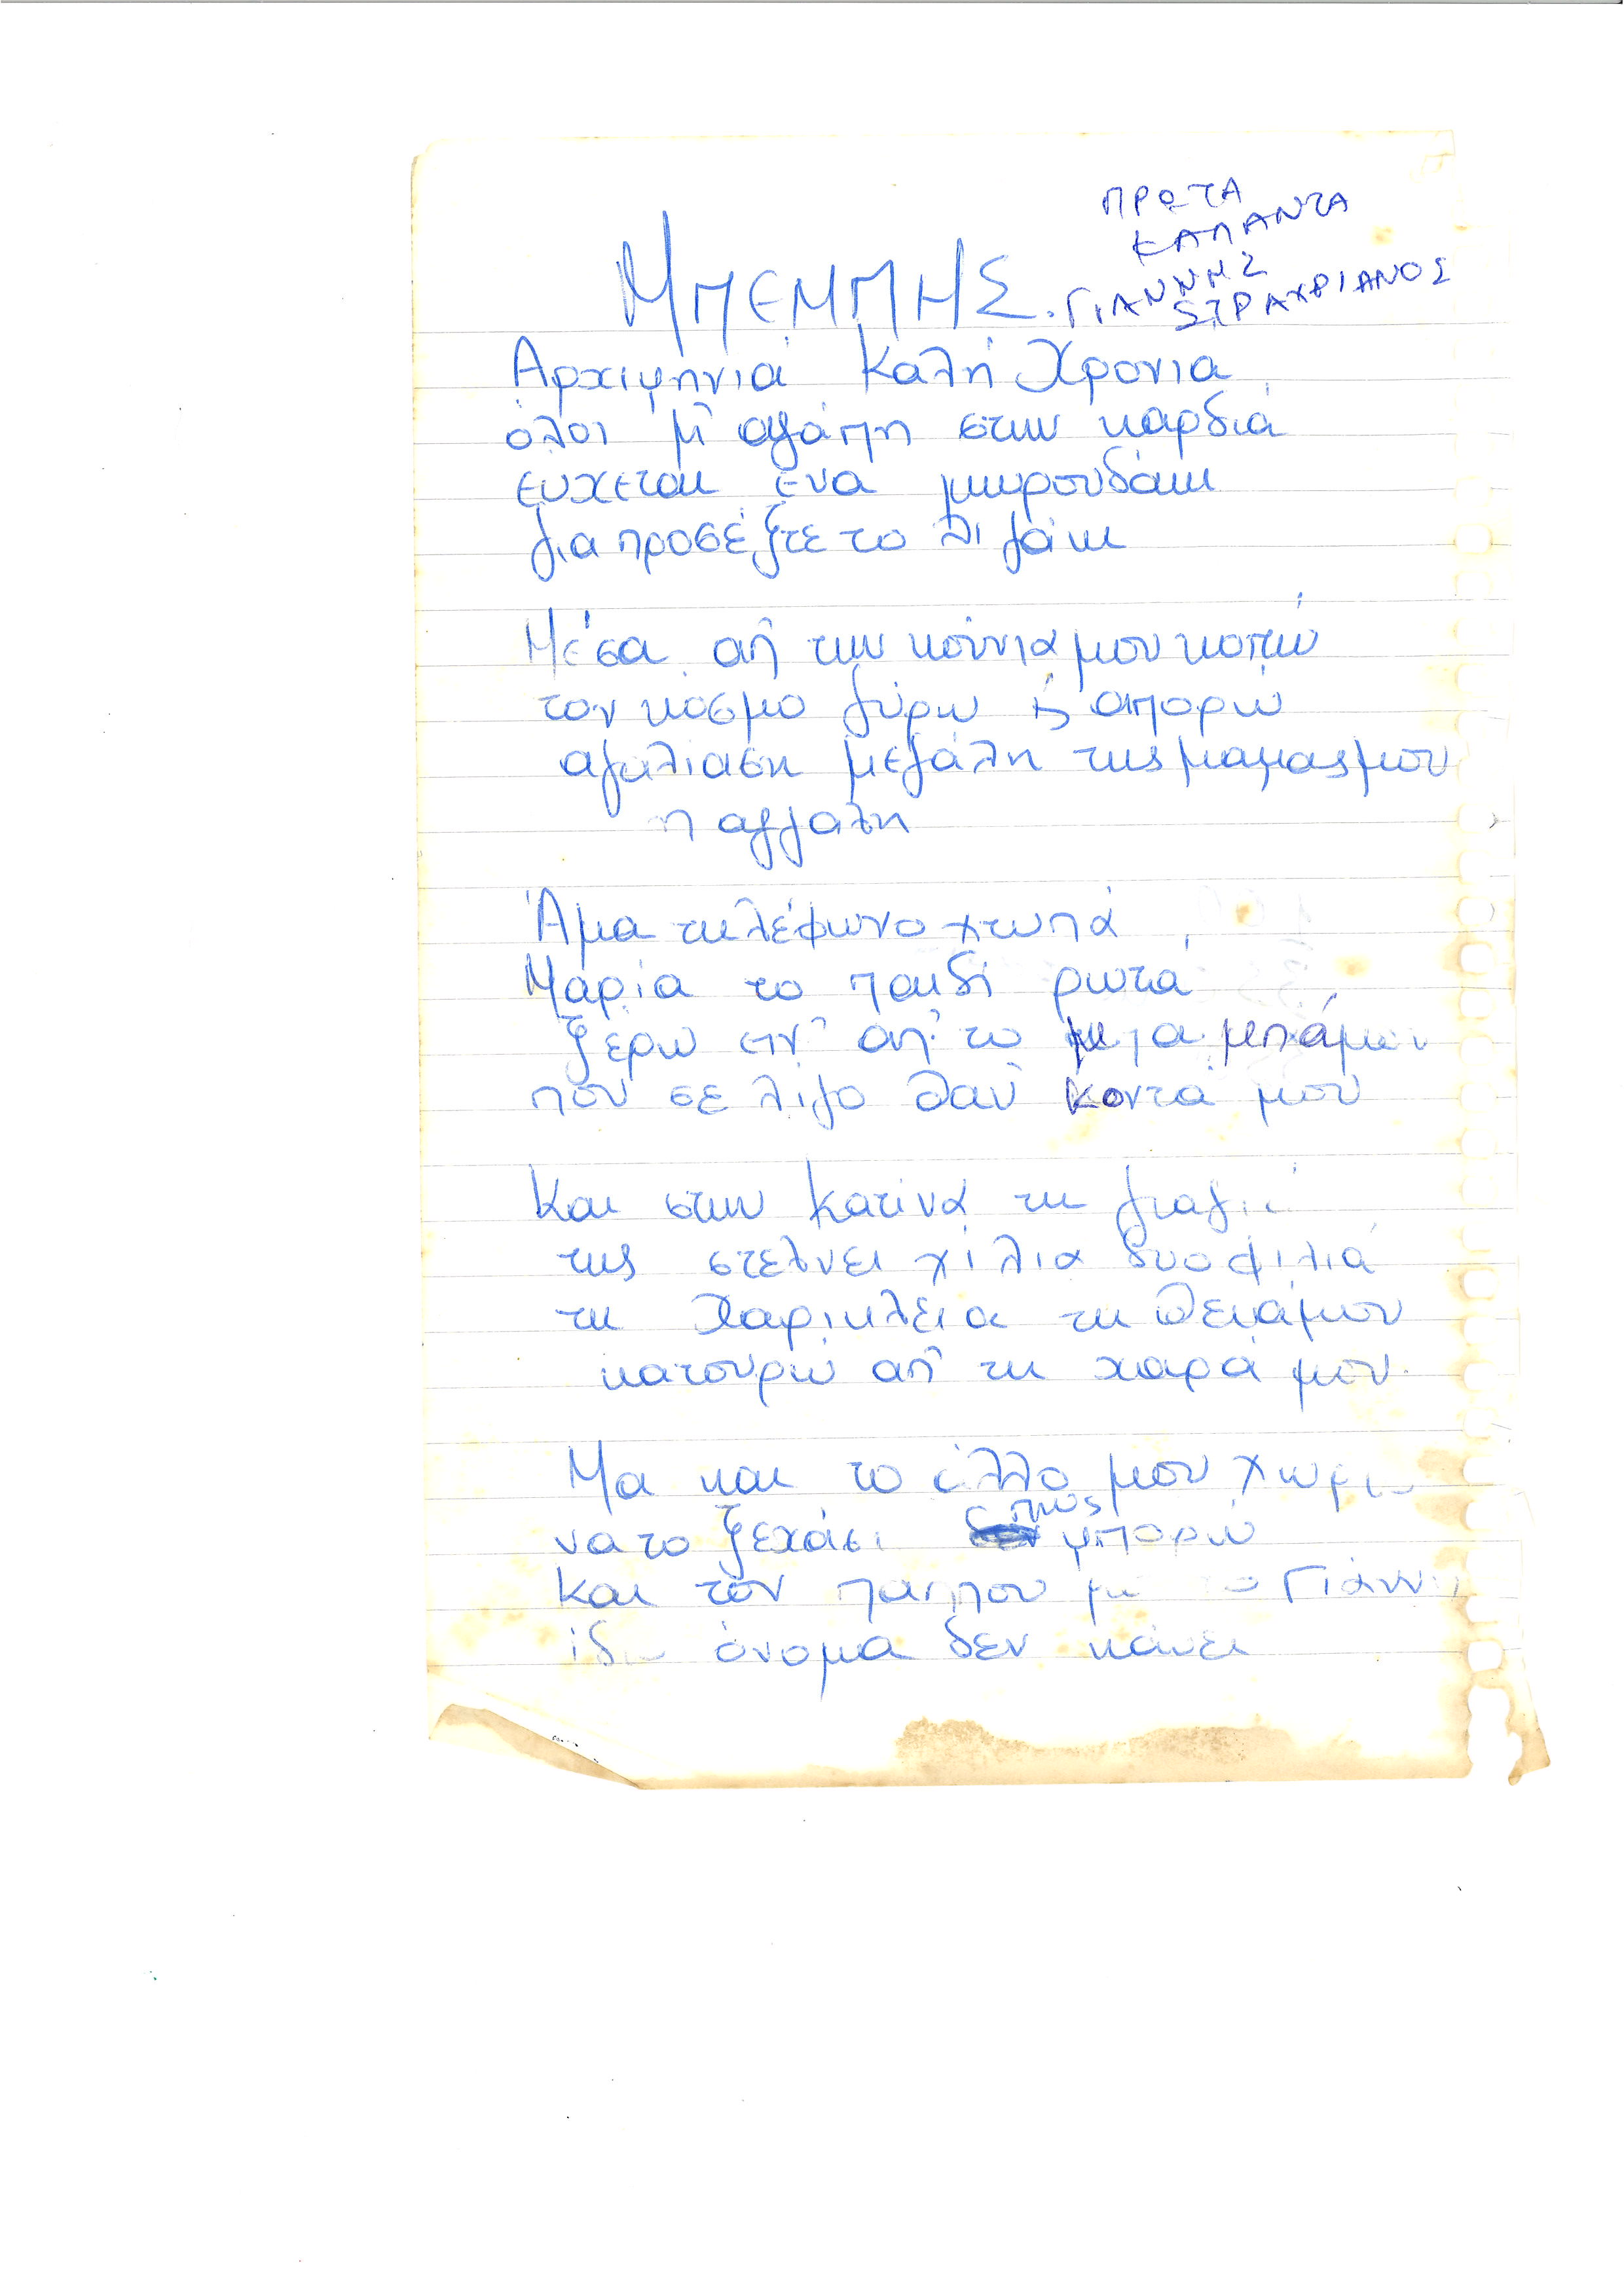 ΠΡΩΤΑ
ΚΑΛΑΝΤΑ
ΓΙΑΝΝΗΣ
ΣΤΡΑΧΘΙΑΝΟΣ
ΜΠΕΜΠΗΣ.
Αρχιμηνιά Καλή Χρονια
όλοι μ' αγάπη στην καρδιά
ευχεται ένα μικρουδάκι
για προσέξτε το λιγάκι
Μέσα απ την κούνια μου κοιτώ
τον κόσμο γύρω κ απορώ
αγαλιαση μεγάλη της μαμας μου
η αγγαλη
Άμα τηλέφωνο χτυπά
Μαρία το παιδί ρωτα
ξερω ειν' απ' το μπάμου
που σε λιγο θαν κοντα μου
Και στην κατίνα τη γιαγιά
της στελνει χίλια δυο φιλιά
τη Χαρικλεια τη θειάμου
κατουρώ απ τη χαρά μου
Μα και το άλλο μου
να το ξεχάσι πως μπορώ
Και τον παππου Γιάννη
όνομα δεν κάνει